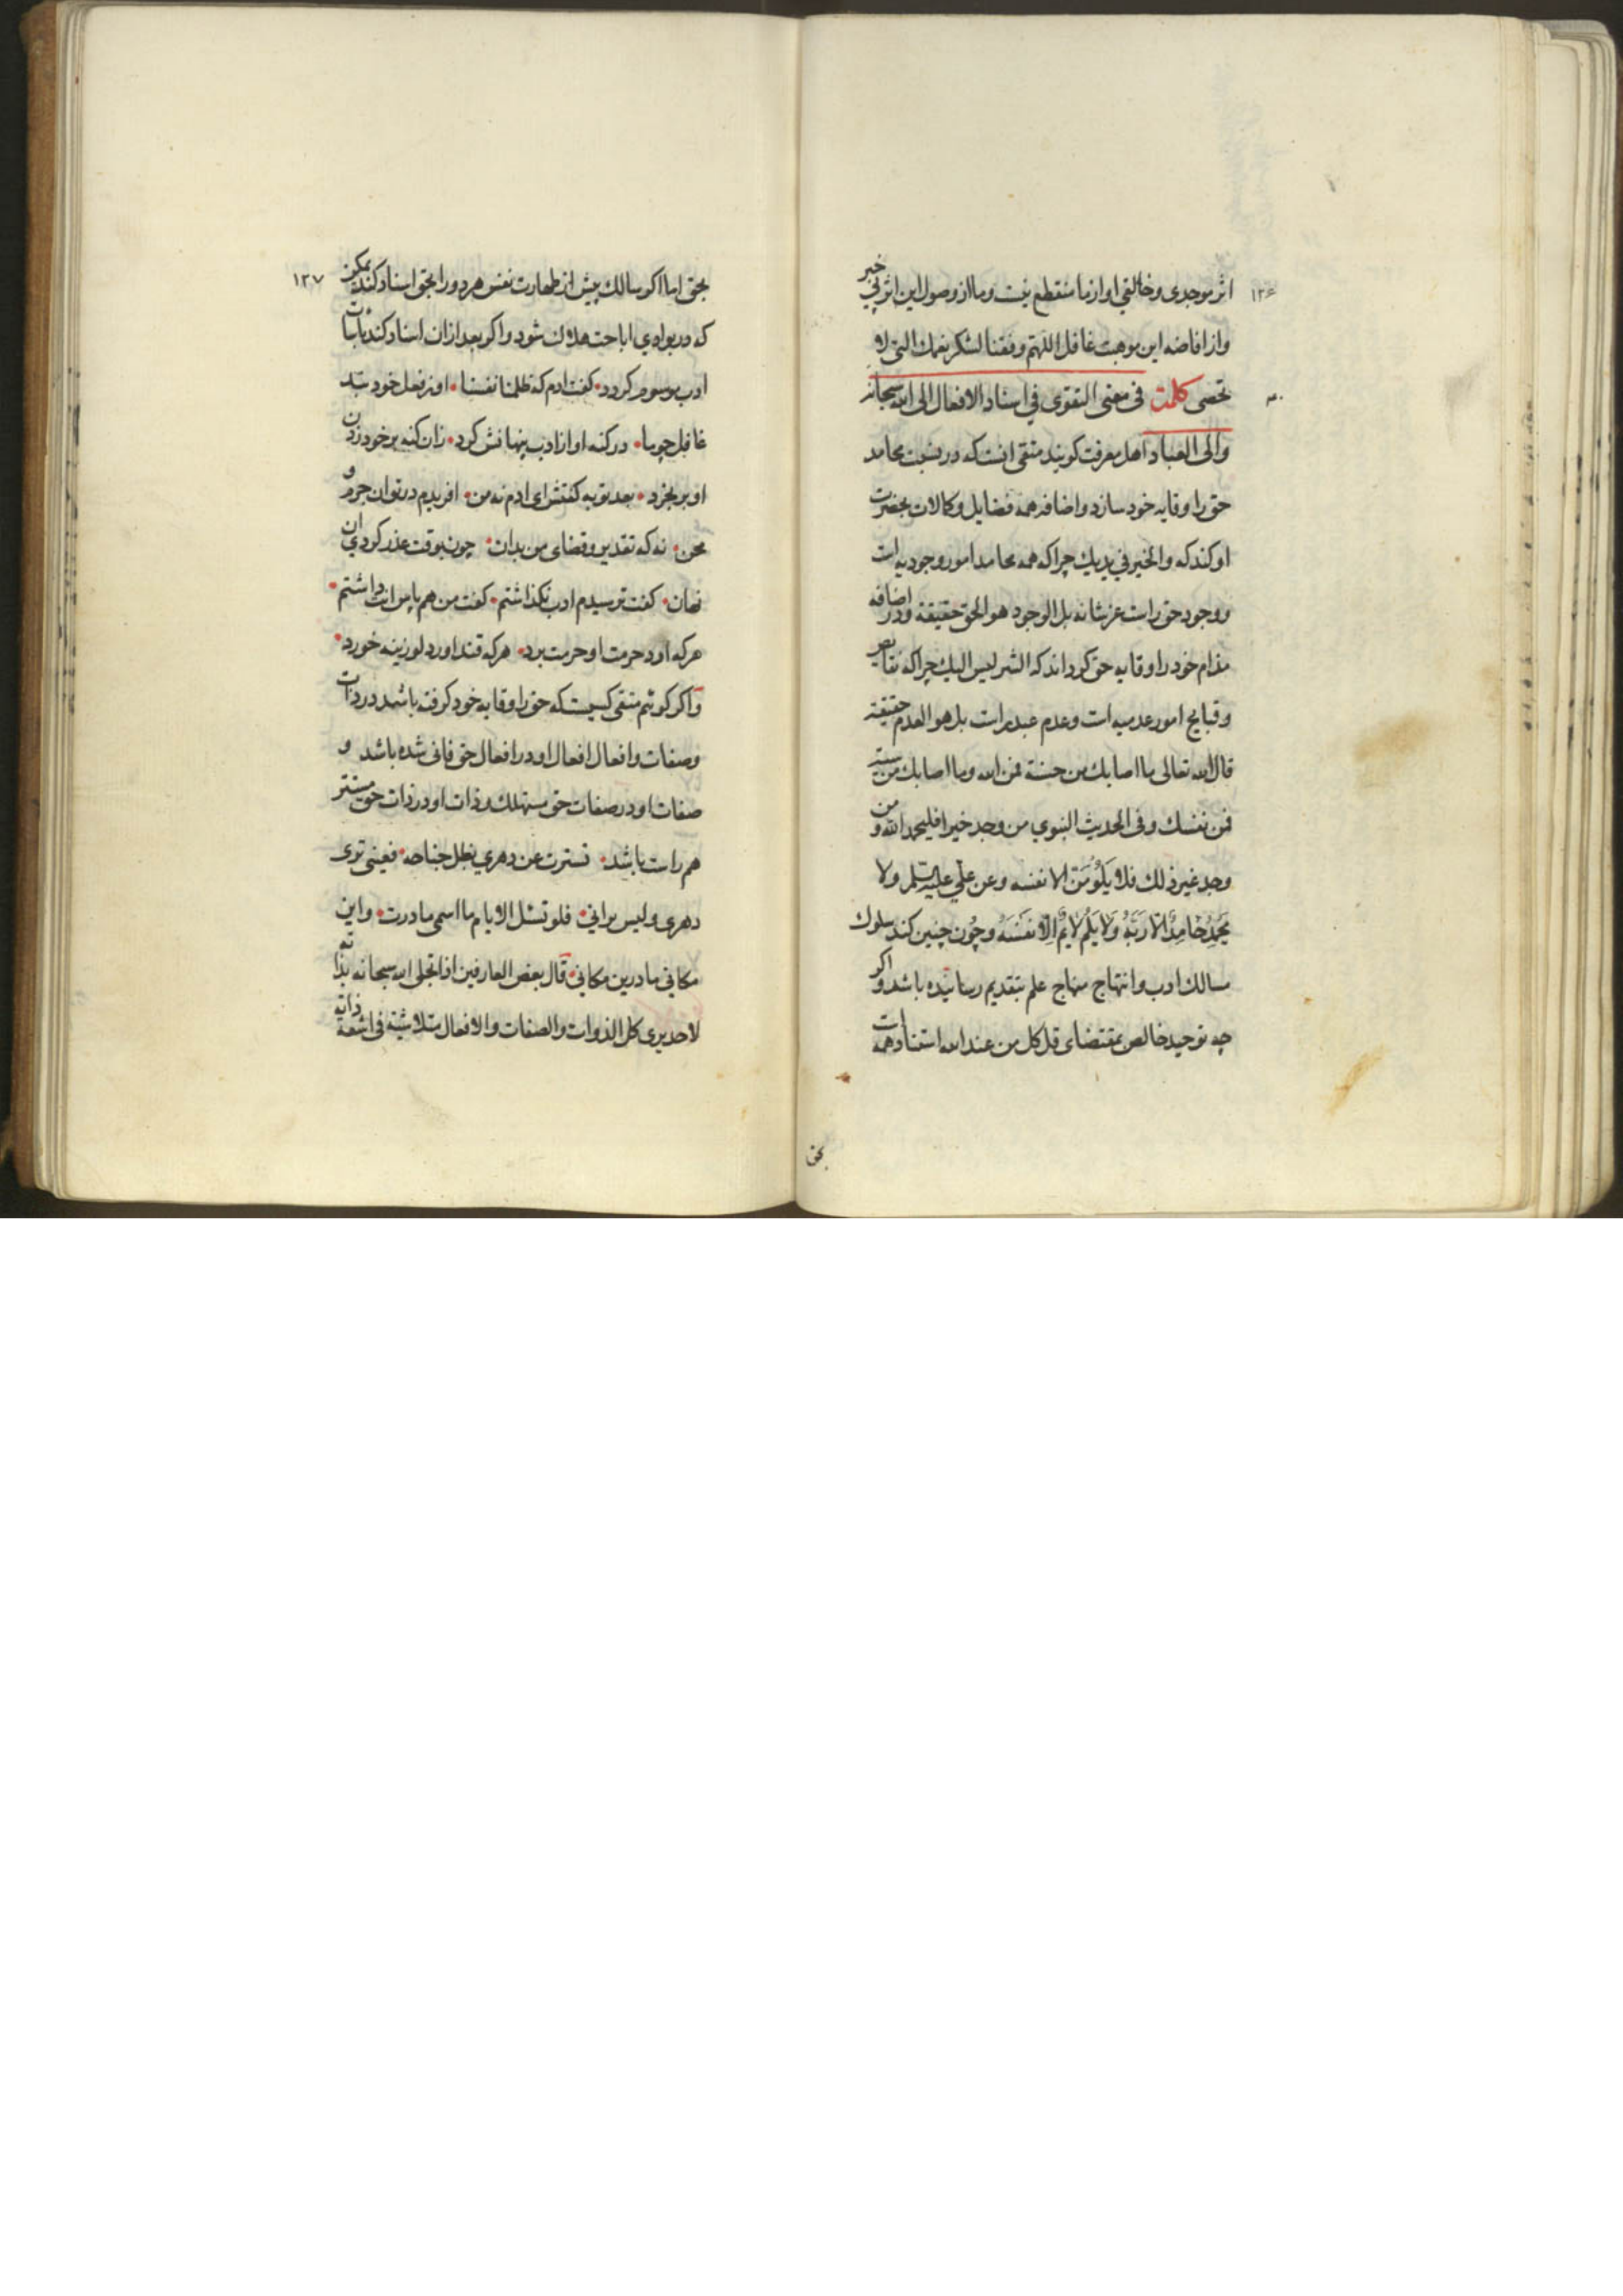 ۱۳۶
اثر موجدی و خالقی او از ما منقطع نیست و ما از وصول این اثر بی خبر
و از افاضه این موهبت غافل اللهم وفقنا لشکر نعمك التی لا
تحصی کلمة فی معنی التقوی فی اسناد الافعال الی الله سبحانه
والی العباد اهل معرفت کویند متقی انست که در نسبت محامد
حق را وقایه خود سازد و اضافه همه فضایل و کمالات بحضرت
او کند که والخیر فی یدیك چرا که همه محامد امور وجودیه است
و وجود حق راست عز شانه بل الوجود هو الحق حقیقة و در اضافه
مذام خود را وقایه حق کرداند که الشر لیس الیك چرا که نقایص
و قبایح امور عدمیه است و عدم عبد راست بل هو العدم حقیقة
قال الله تعالی ما اصابك من حسنة فمن الله وما اصابك من سیئة
فمن نفسك و فی الحدیث النبوي من وجد خیرا فلیحمد الله و من
وجد غیر ذلك فلا یَلُومَنّ الا نفسه و عن علي علیه السلم ولا
یَحْمِدُ حَامِدٌ الّا رَبَّهُ وَلَا یَلُم لَائِمٌ اِلّا نَفْسَهُ و چون چنین کند سلوك
مسالك ادب و انتهاج منهاج علم بتقدیم رسانیده باشد و اکر
چه توحید خالص بمقتضای قل کل من عند الله استناد همه است
بحق
۱۳۷
بحق اما اکر سالك پیش از طهارت نفس هر دو را بحق اسناد کند ممکن
که در بوادي اباحت هلاك شود و اکر بعد از ان اسناد کند باسات
ادب موسوم کردد • کفت ادم که ظلمنا نفسنا • او ز فعل خود نبد
غافل چو ما • در کنه او از ادب پنهانش کرد • زان کنه بر خود زدن
او بر بخورد • بعد توبه کفتش ای ادم نه من • افریدم در تو ان جرم و
محن • نه که تقدیر و قضای من بد ان • چون بوقت عذر کردي ان
نهان • کفت ترسیدم ادب نکذاشتم • کفت من هم پاس انت داشتم •
هر که اورد حرمت او حرمت برد • هر که قند اورد لوزینه خورد •
و اکر کوئیم متقی کسیست که حق را وقایه خود کرفته باشد در ذات
و صفات و افعال افعال او در افعال حق فانی شده باشد و
صفات او در صفات حق مستهلك و ذات او در ذات حق مستتر
هم راست باشد • تسترت عن دهري بظل جناحه • فعینی تری
دهری ولیس یرانی • فلو تسئل الایام ما اسمی ما درت • واین
مکانی ما درین مکانی • قال بعض العارفین اذا تجلی الله سبحانه بذاته
لاحد یری کل الذوات والصفات والافعال متلاشیة فی اشعة ذاته